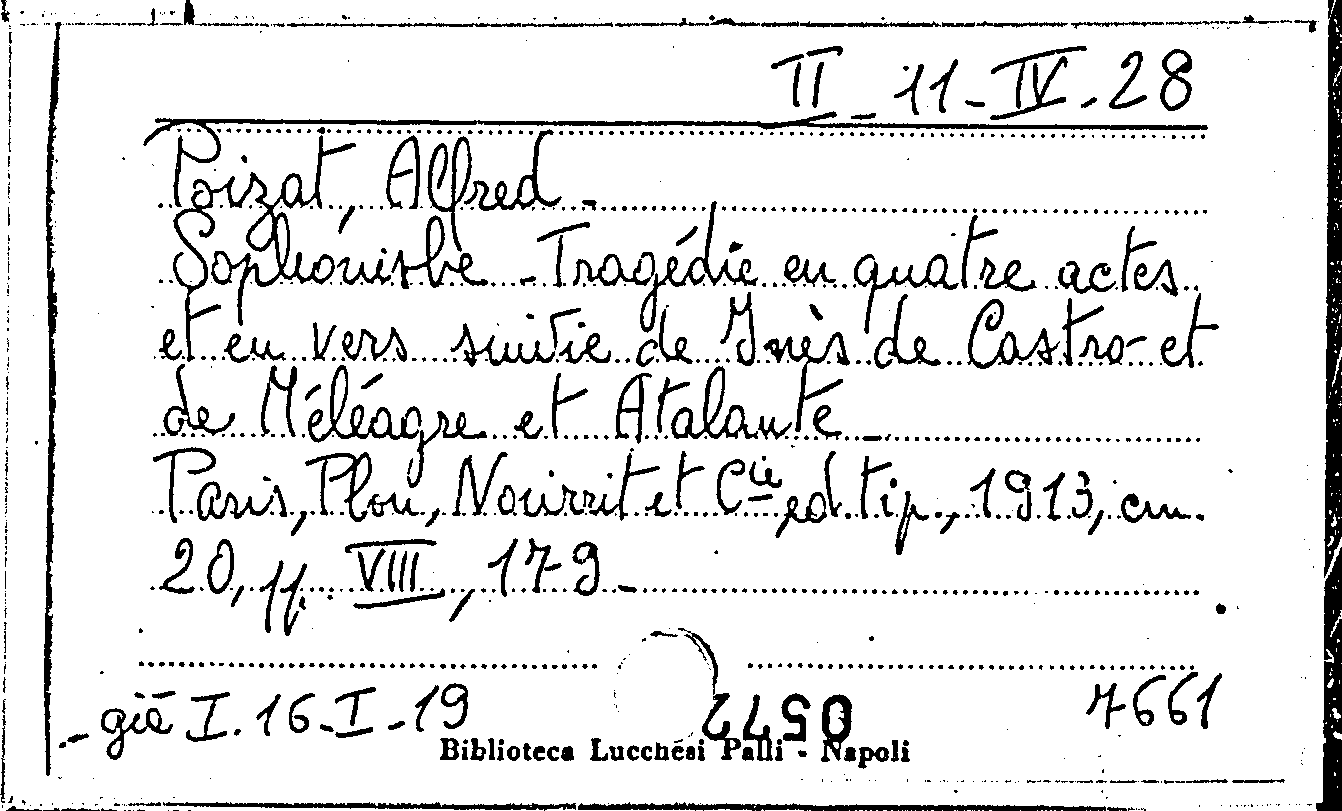 II - 11 - IV - 28
Poizat, Alfred -
Sophonisbe - Tragédie en quatre actes
et en vers suivie de Inès de Castro et
de Méléagre et Atalante -
Paris, Plon, Nourrit et Cie ed. tip., 1913, cm.
20, pp. VIII, 179 -
- già I. 16 - I - 19
0572
7661
Biblioteca Lucchesi Palli - Napoli